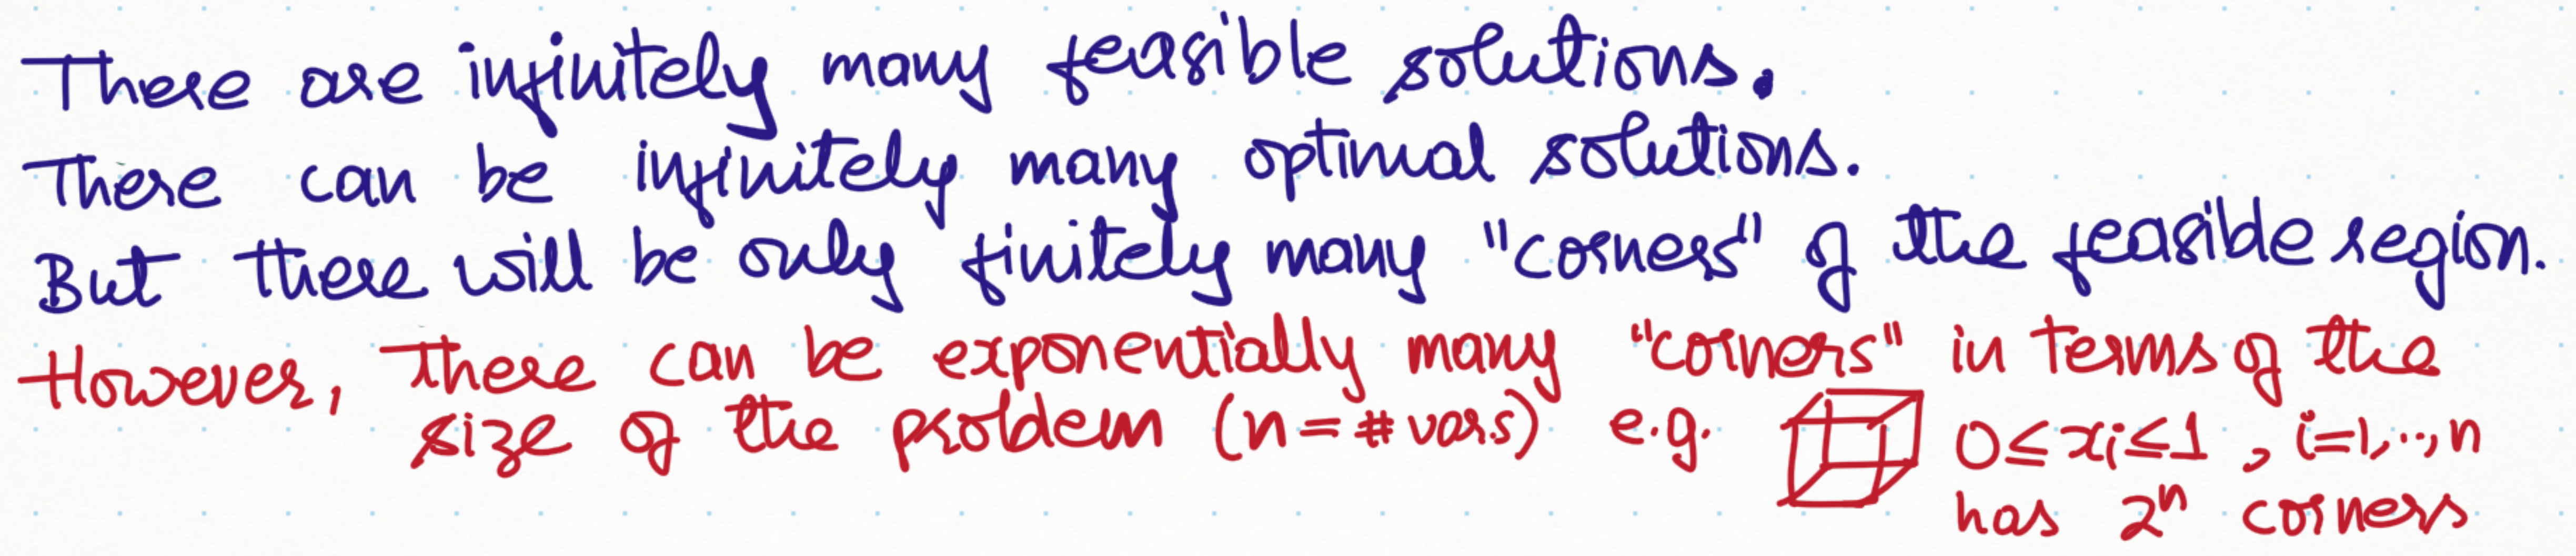 There are infinitely many feasible solutions.
There can be infinitely many optimal solutions.
But there will be only finitely many "corners" of the feasible region.
However, there can be exponentially many "corners" in terms of the
size of the problem (n = # vars.) e.g. 0 ≤ xᵢ ≤ 1 , i=1,..,n
has 2ⁿ corners